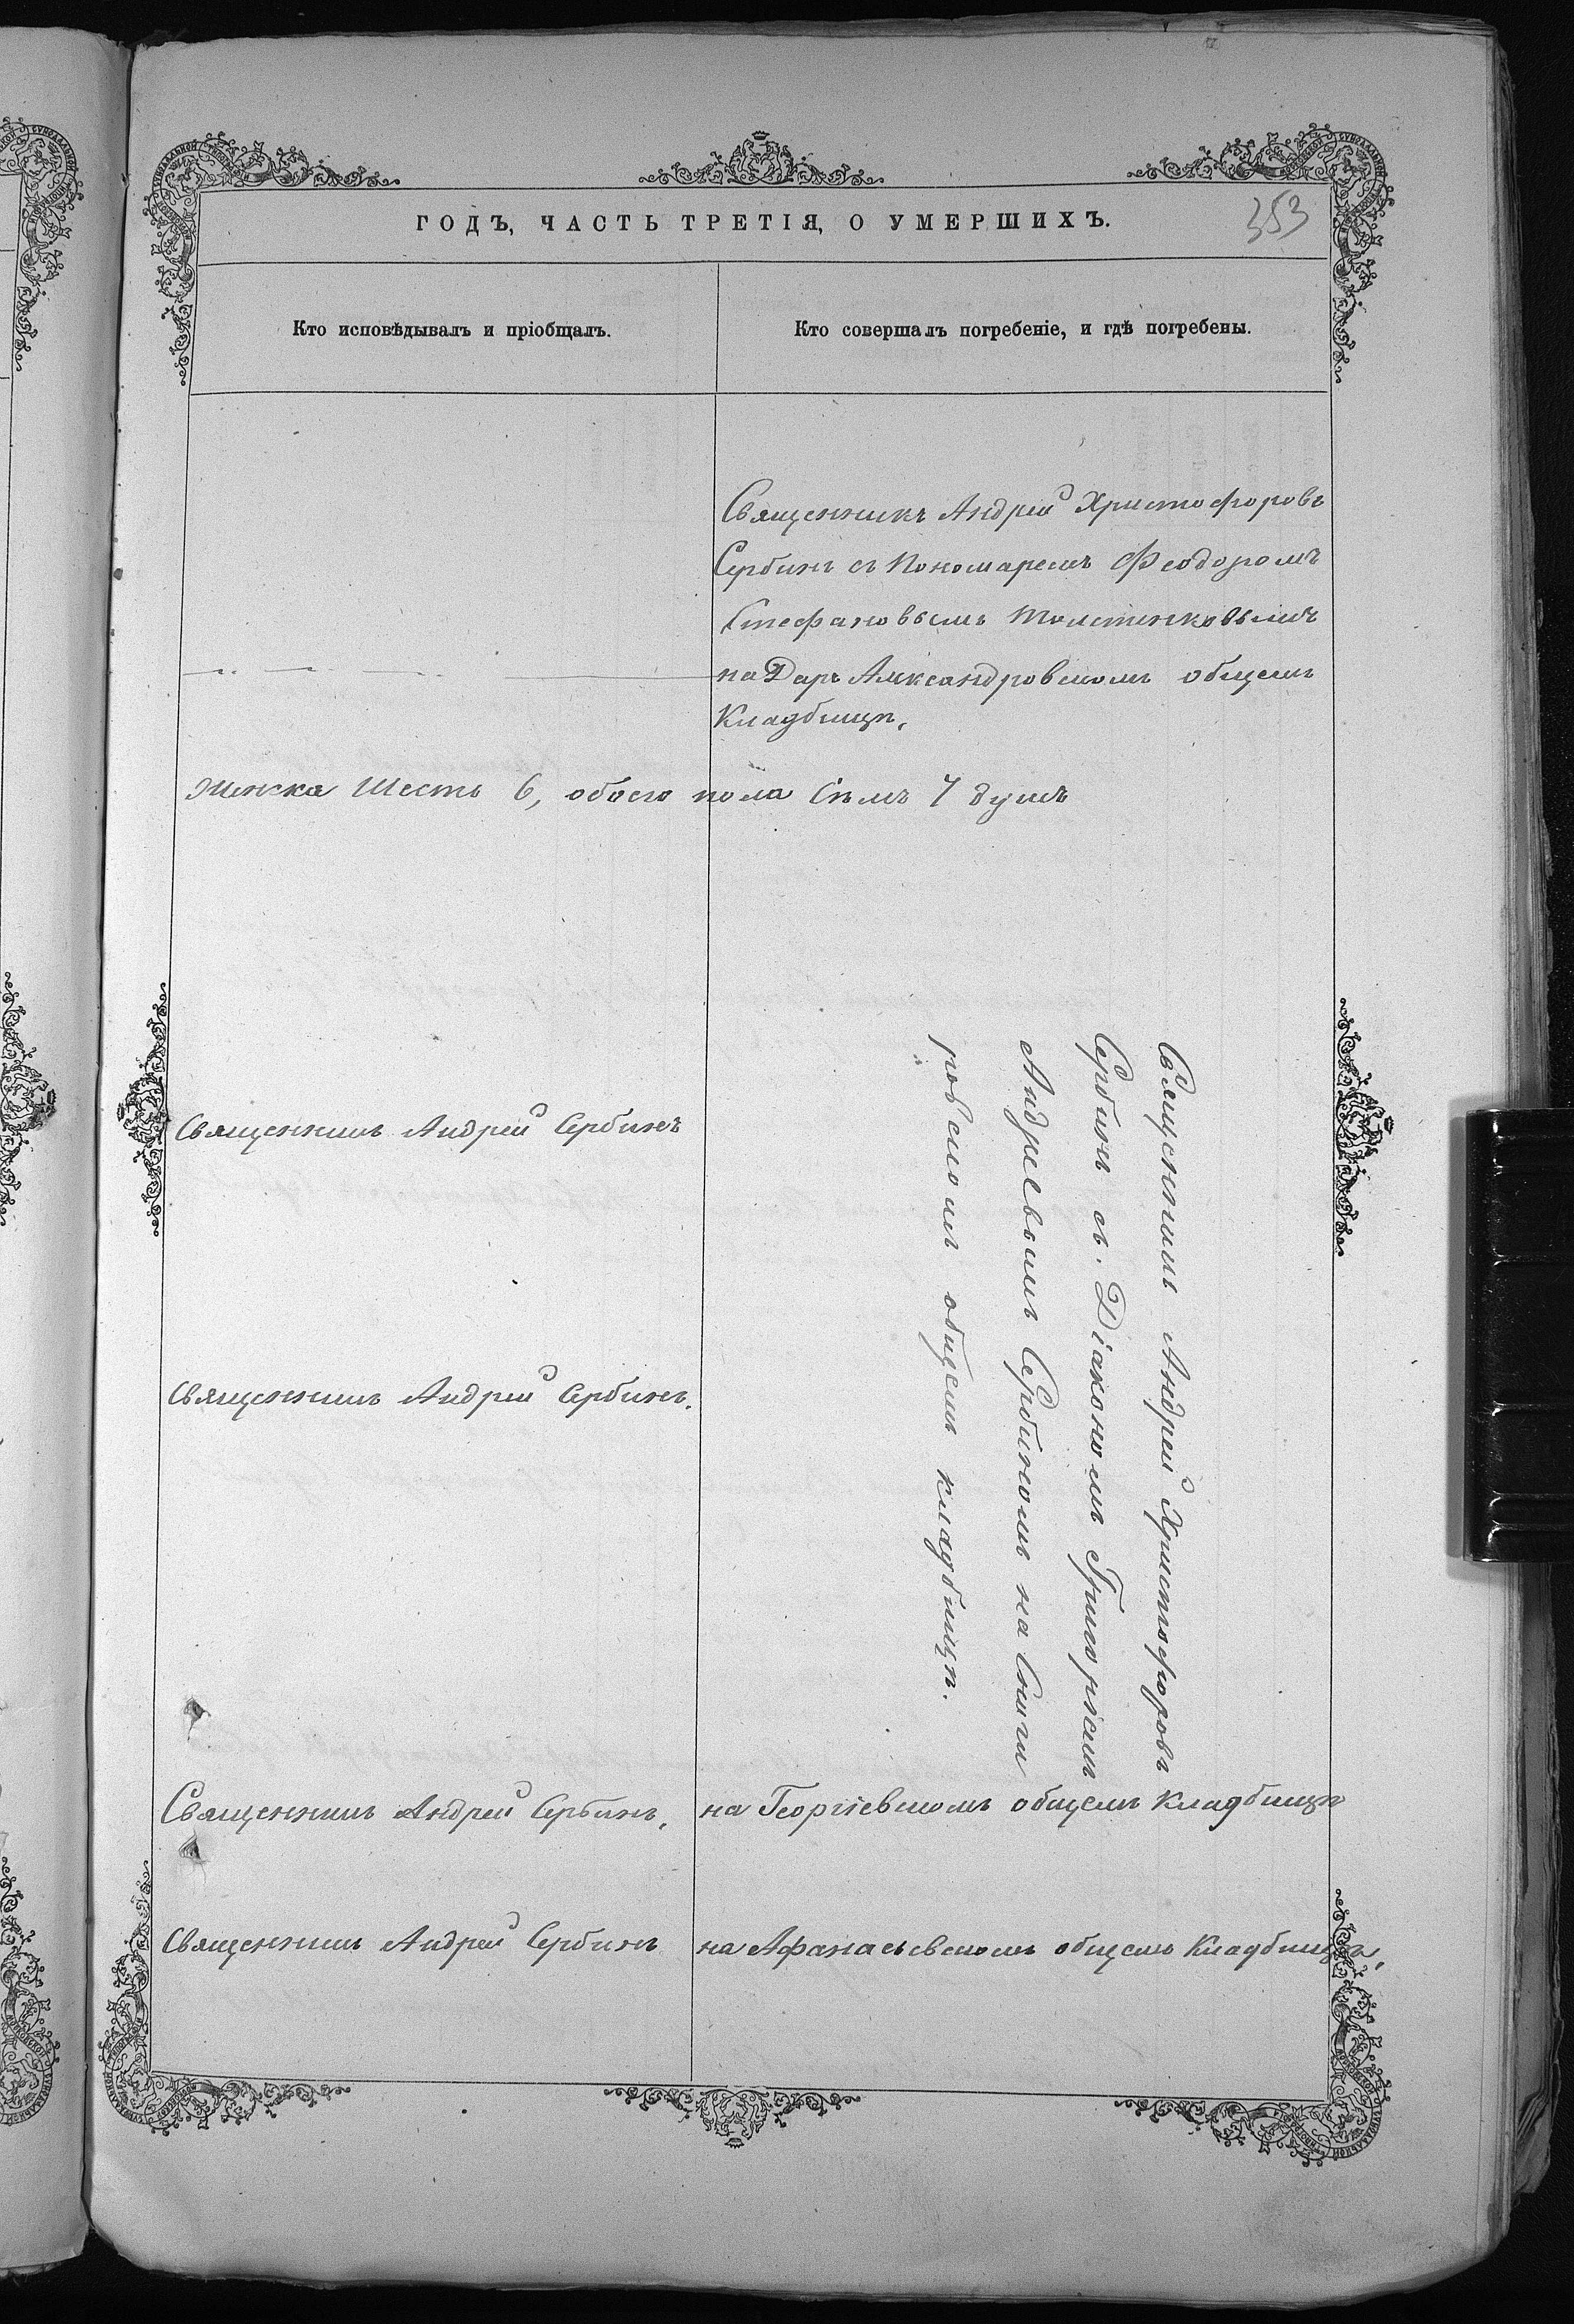 ГОДЪ, ЧАСТЬ ТРЕТІЯ, О УМЕРШИХЪ.
353
Кто исповѣдывалъ и пріобщалъ.
Кто совершалъ погребеніе, и гдѣ погребены.
Священникъ Андрей Христофоровъ
Сербинъ съ Пономаремъ Феодоромъ
Стефановымъ
на Дарь Александровскомъ общемъ
Кладбищѣ,
женска Шесть 6, обоего пола Сѣмъ 7 душъ
Священникъ Андрей Сербинъ
Священникъ Андрей Христофоровъ
Сербинъ съ. Діакономъ Григоріемъ
Андреевымъ Сербиномъ на Сниги
ровскомъ общемъ кладбищѣ.
Священникъ Андрей Сербинъ.
Священникъ Андрей Сербинъ,
на Георгіевскомъ общемъ Кладбищѣ
Священникъ Андрей Сербинъ
на Афанасьевскомъ общемъ Кладбищѣ,